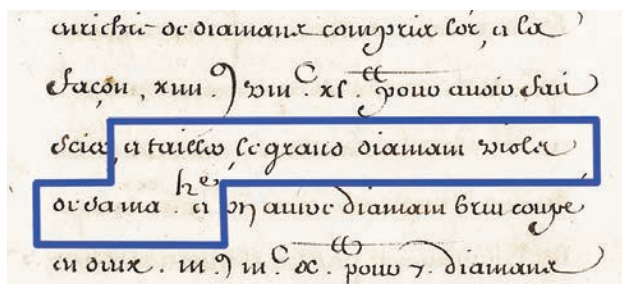 enrichie de diamans compris l'or, et la
façon, xiiii. viii.C xl. ₶ pour avoir fait
scier, et tailler, le grand diamant violet
de sa ma.te et un autre diamant brut coupé
en deux. iii. iii.C ₶ pour 7. diamans